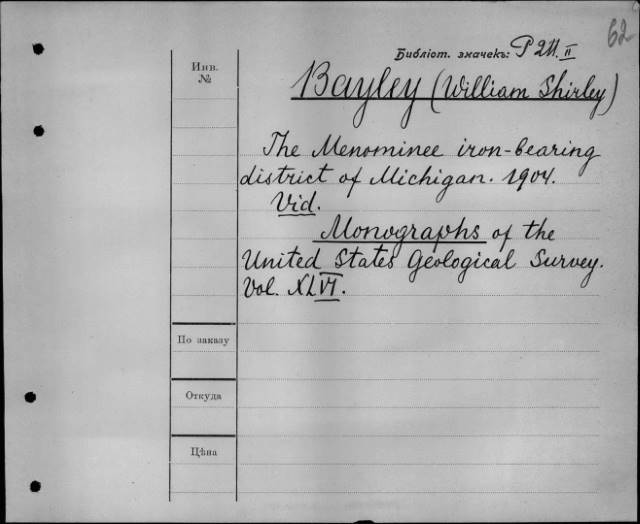 62
Библіот. значекъ: P 2M. II
Инв. №
Bayley (William Shirley)
The Menominee iron-bearing
district of Michigan. 1904.
Vid.
Monographs of the
United States Geological Survey.
Vol. XLVI.
По заказу
Откуда
Цѣна